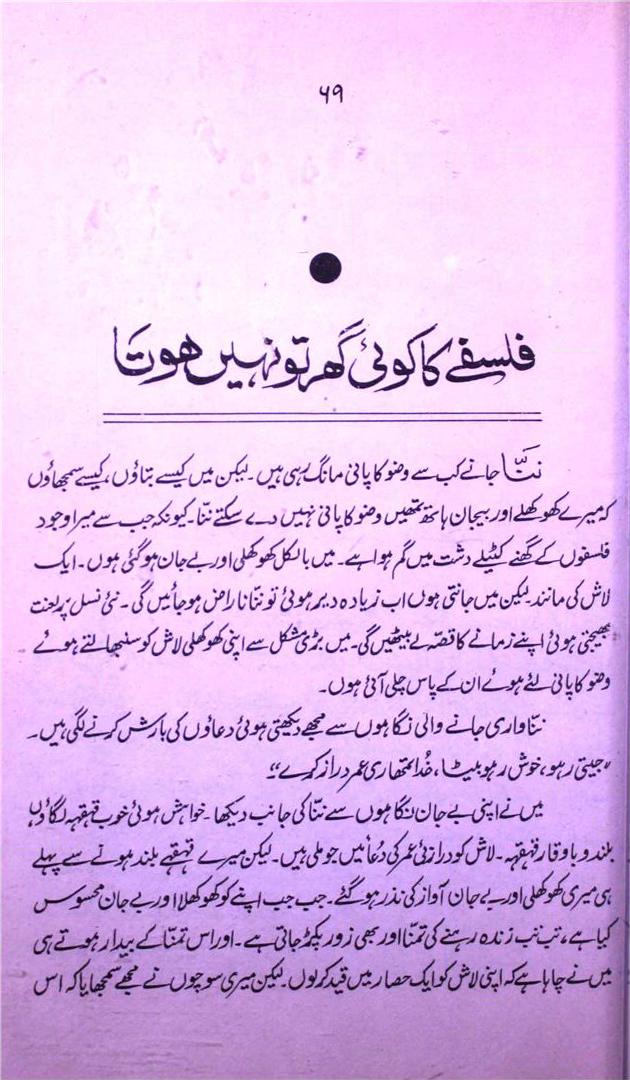 ۶۹
فلسفے کا کوئی گھر تو نہیں ہوتا
ننّا جانے کب سے وضو کا پانی مانگ رہی ہیں۔ لیکن میں کیسے بتاؤں، کیسے سمجھاؤں
کہ میرے کھوکھلے اور بیجان ہاتھ تمھیں وضو کا پانی نہیں دے سکتے ننّا۔ کیونکہ جب سے میرا وجود
فلسفوں کے گھنے کٹیلے دشت میں گم ہوا ہے۔ میں بالکل کھوکھلی اور بے جان ہو گئی ہوں۔ ایک
لاش کی مانند۔ لیکن میں جانتی ہوں اب زیادہ دیر ہوئی تو ننّا ناراض ہو جائیں گی۔ نئی نسل پر لعنت
بھیجتی ہوئی اپنے زمانے کا قصّہ لے بیٹھیں گی۔ میں بڑی مشکل سے اپنی کھوکھلی لاش کو سنبھالتے ہوئے
وضو کا پانی لئے ہوئے ان کے پاس چلی آئی ہوں۔
ننّا واری جانے والی نگاہوں سے مجھے دیکھتی ہوئی دعاؤں کی بارش کرنے لگی ہیں۔
"جیتی رہو، خوش رہو بیٹا، خُدا تمھاری عمر دراز کرے"
میں نے اپنی بے جان نگاہوں سے ننّا کی جانب دیکھا۔ خواہش ہوئی خوب قہقہہ لگاؤں
بلند و باوقار قہقہہ۔ لاش کو درازئ عمر کی دُعائیں جو ملی ہیں۔ لیکن میرے قہقہے بلند ہونے سے پہلے
ہی میری کھوکھلی اور بے جان آواز کی نذر ہو گئے۔ جب جب اپنے کو کھوکھلا اور بے جان محسوس
کیا ہے، تب تب زندہ رہنے کی تمنّا اور بھی زور پکڑ جاتی ہے۔ اور اس تمنّا کے بیدار ہوتے ہی
میں نے چاہا ہے کہ اپنی لاش کو ایک حصار میں قید کر لوں۔ لیکن میری سوچوں نے مجھے سمجھایا کہ اس